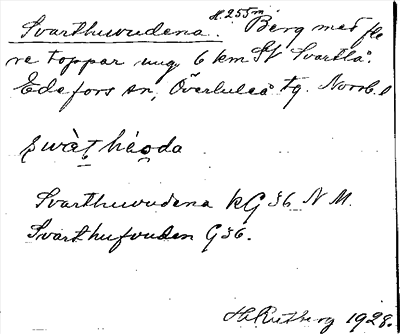 Svarthuvudena. H. 255 m Berg med fle
re toppar ung. 6 km St Svartlå.
Edefors sn, Överluleå tg. Norrb. l
s̥wàt̥ háo̥da
Svarthuvudena kG 36 N M.
Svarthufvuden G 36.
H. Rutberg 1928.